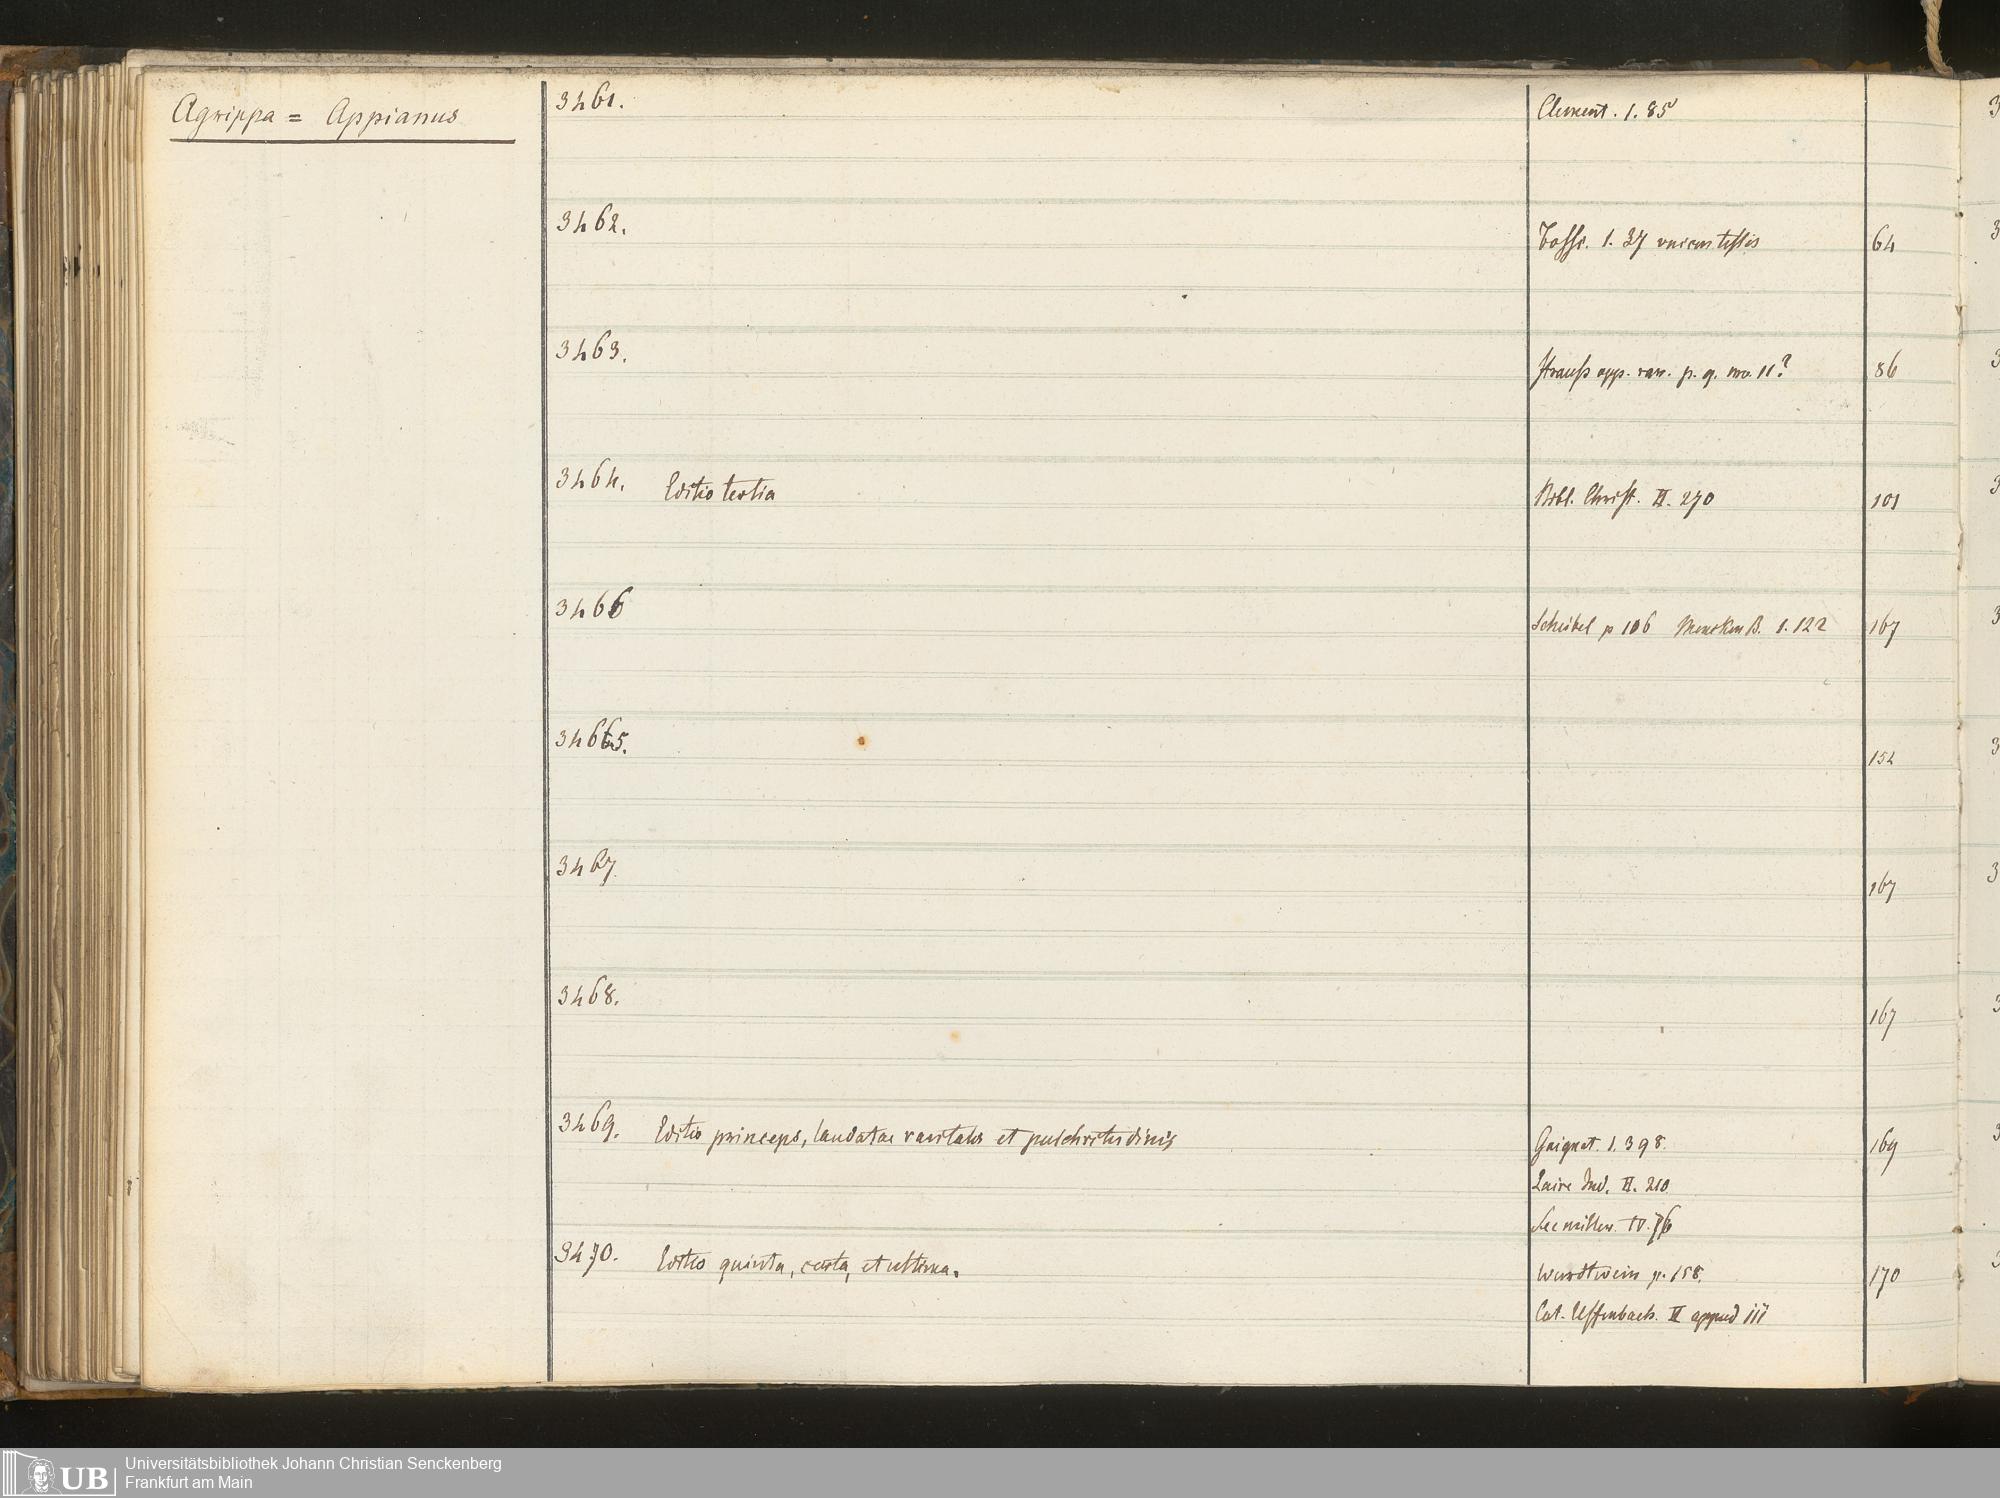 Agrippa = Appianus
3461. Clement. 1. 85
3462. 1. 37 unicus testis 64
3463. Strauss opp. rar. p. 9. nro. 11? 86
3464. Editio tertia Bibl. Christ. II. 270 101
3466 Scheibel p 106 Mencken B. 1. 122 167
34665. 152
3467. 167
3468. 167
3469. Editio princeps, laudatae raritatis et pulchritudinis Gaignat. 1. 398. 169
Laire Ind. II. 210
Seemiller. IV. 76
3470. Editio quinta, et ultima. Wurdtwein p. 158. 170
Cat. Uffenbach. II append iii
Universitätsbibliothek Johann Christian Senckenberg
Frankfurt am Main
UB